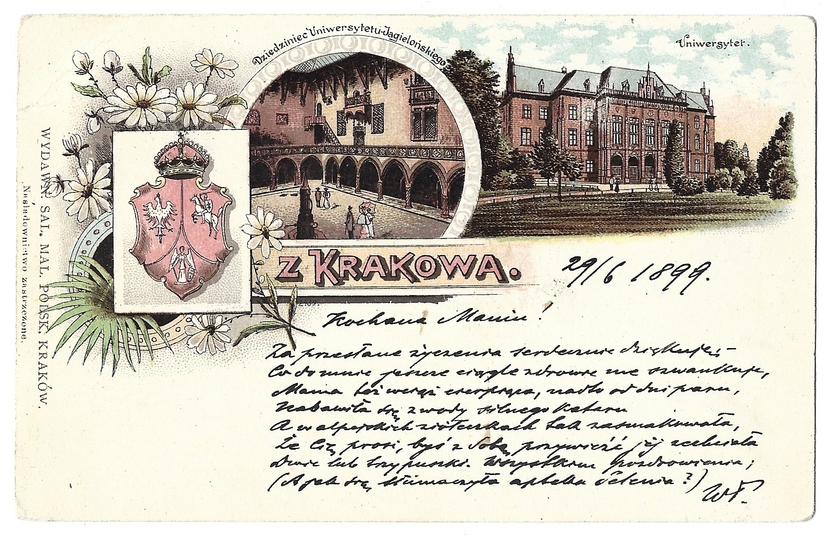 Dziedziniec Uniwersytetu-Jagielońskiego
Uniwersytet.
Z KRAKOWA.
WYDAWN. SAL. MAL. POLSK. KRAKÓW.
Naśladownictwo zastrzeżone.
29/6 1899.
Kochana Maniu!
Za przesłane życzenia serdecznie dziękuję;
Co do mnie jeszcze ciągle zdrowie me szwankuje,
Mama też wciąż cierpiąca, nadto od dni paru,
Nabawiła się z wody silnego kataru
A w alpejskich ziółeczkach tak zasmakowała,
Że Cię prosi, byś z sobą przywieźć jej zechciała
Dwie lub trzy puszki. Wszystkim pozdrowienia;
(A jak się tłumaczyła apteka)